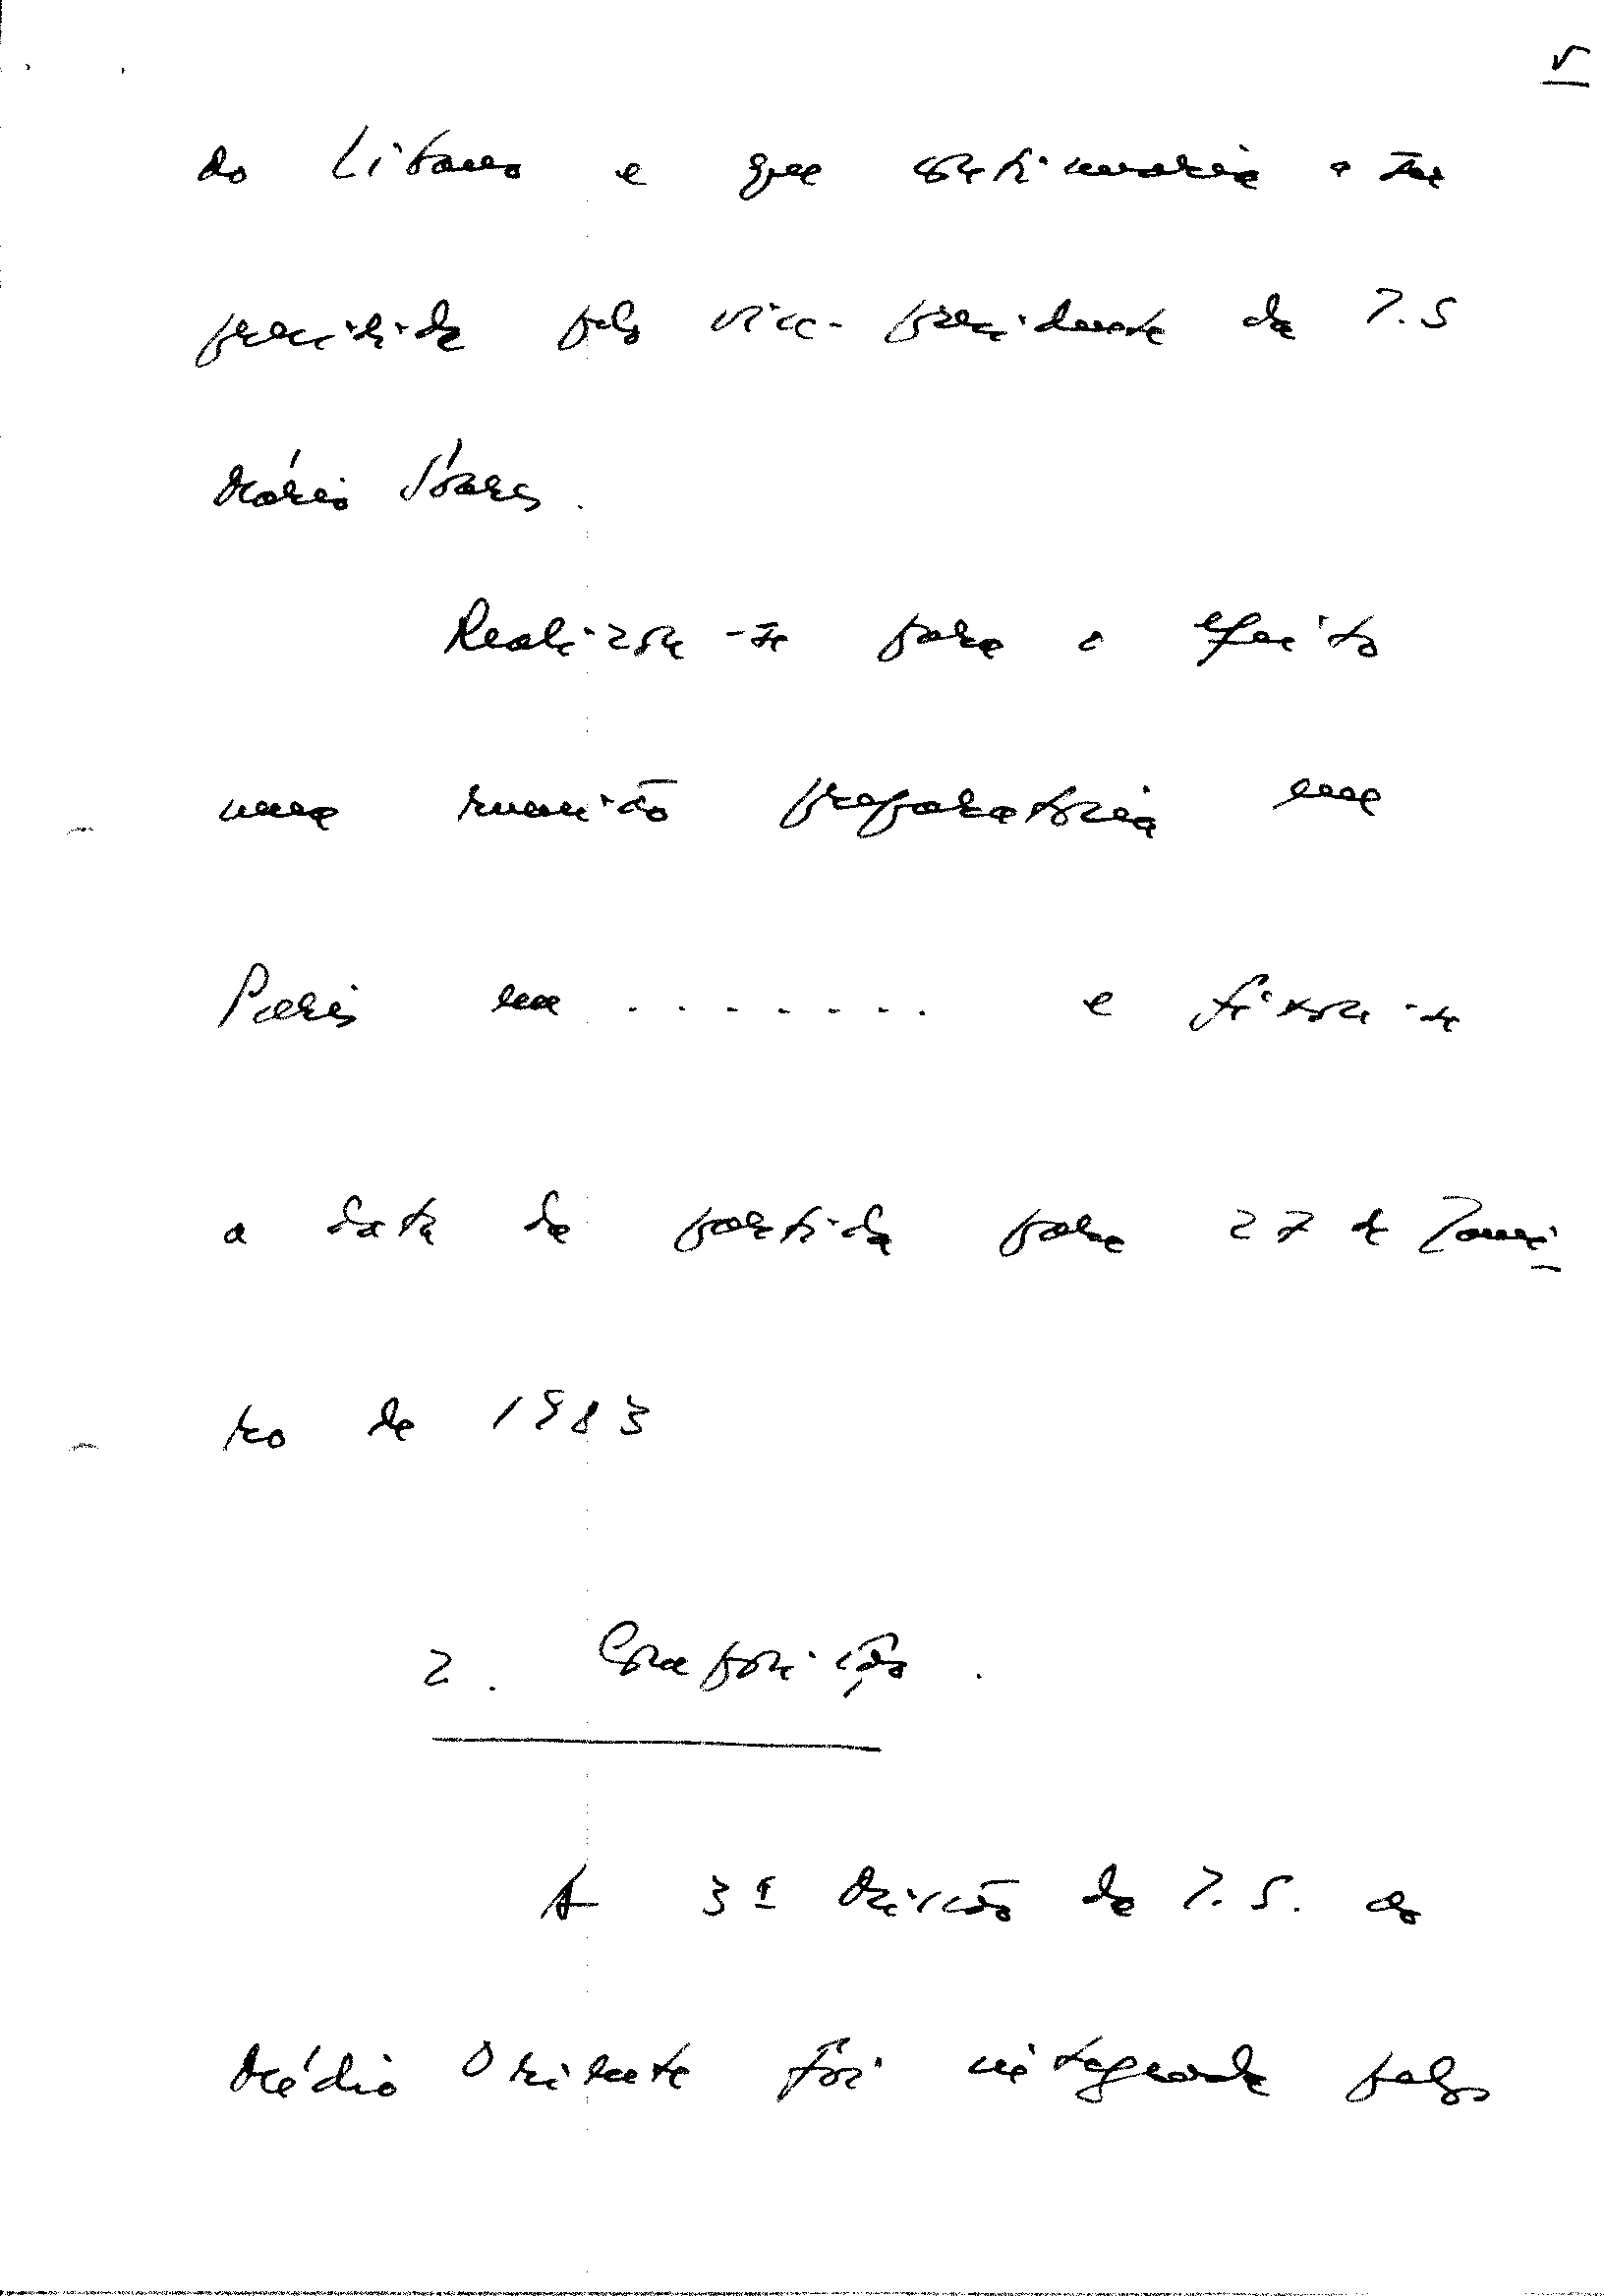 5
do Líbano e que continuaria a ser
presidida pelo vice-presidente da I.S
Mário Soares.
Realizou-se para o efeito
uma reunião preparatória em
Paris em ....... e fixou-se
a data da partida para 27 de Janei
ro de 1983
2. Composição.
A 3ª Missão da I.S. ao
Médio Oriente foi integrada pelos